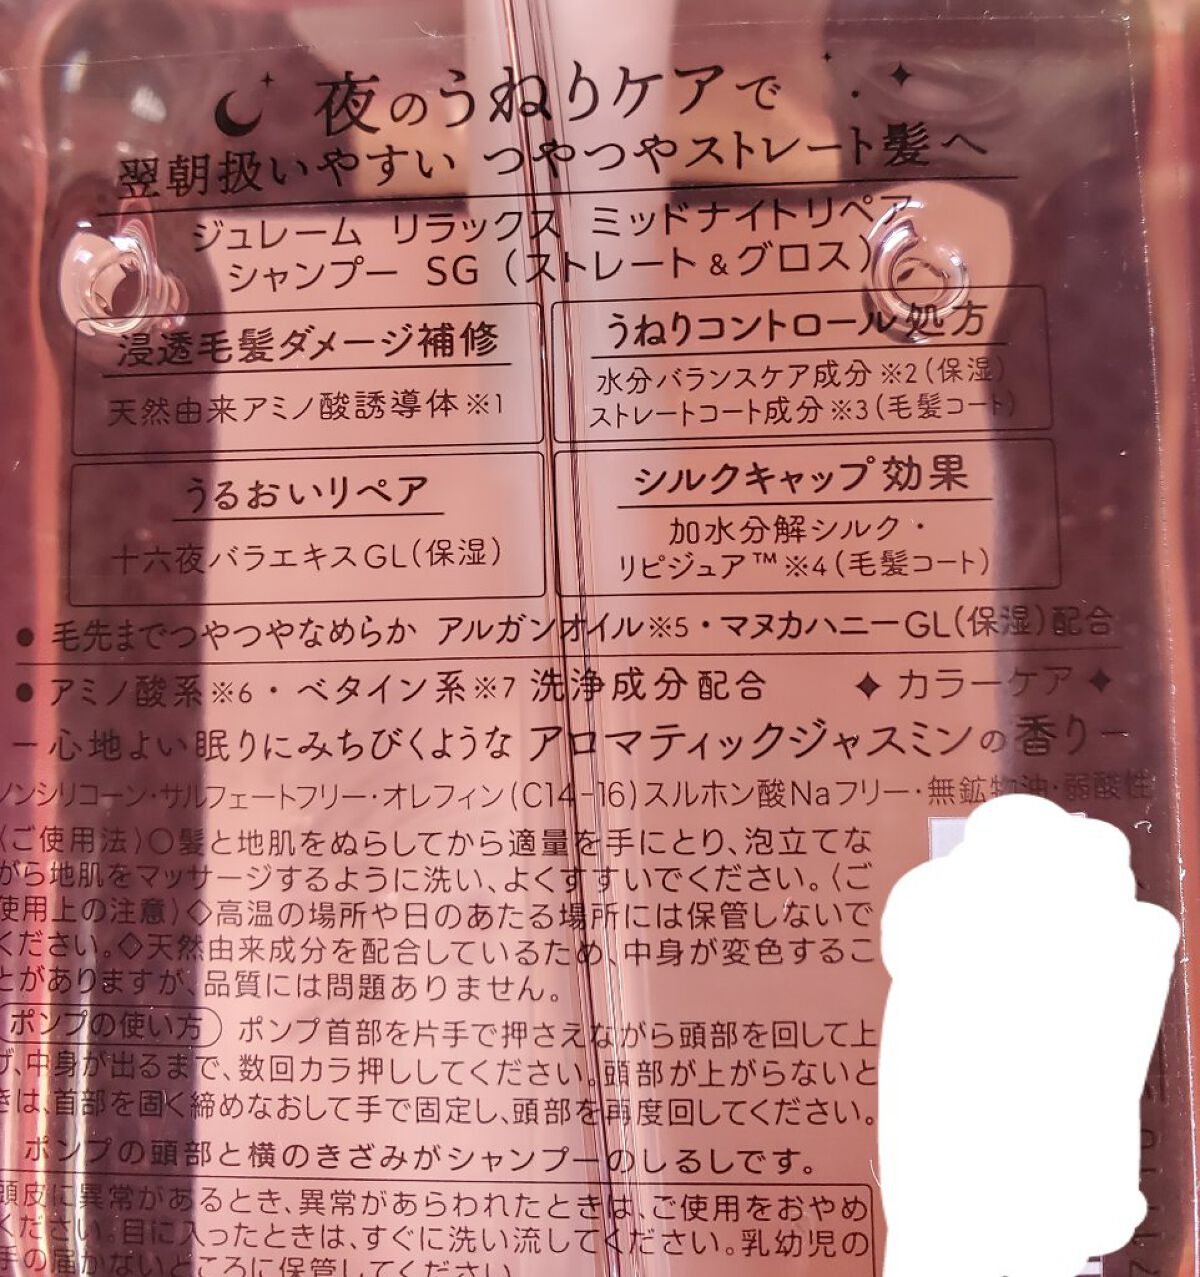 夜のうねりケアで
翌朝扱いやすい つやつやストレート髪へ
ジュレーム リラックス ミッドナイトリペア
シャンプー SG（ストレート&グロス）
浸透毛髪ダメージ補修
天然由来アミノ酸誘導体※1
うねりコントロール処方
水分バランスケア成分※2(保湿)
ストレートコート成分※3(毛髪コート)
うるおいリペア
十六夜バラエキスGL(保湿)
シルクキャップ効果
加水分解シルク・
リピジュア™※4(毛髪コート)
●毛先までつやつやなめらか アルガンオイル※5・マヌカハニーGL(保湿)配合
●アミノ酸系※6・ベタイン系※7 洗浄成分配合 ✦カラーケア✦
－心地よい眠りにみちびくような アロマティックジャスミンの香り－
ノンシリコーン・サルフェートフリー・オレフィン(C14-16)スルホン酸Naフリー・無鉱物油・弱酸性
〈ご使用法〉○髪と地肌をぬらしてから適量を手にとり、泡立てな
がら地肌をマッサージするように洗い、よくすすいでください。〈ご
使用上の注意〉◇高温の場所や日のあたる場所には保管しないで
ください。◇天然由来成分を配合しているため、中身が変色するこ
とがありますが、品質には問題ありません。
ポンプの使い方 ポンプ首部を片手で押さえながら頭部を回して上
げ、中身が出るまで、数回カラ押ししてください。頭部が上がらないと
きは、首部を固く締めなおして手で固定し、頭部を再度回してください。
ポンプの頭部と横のきざみがシャンプーのしるしです。
頭皮に異常があるとき、異常があらわれたときは、ご使用をおやめ
ください。目に入ったときは、すぐに洗い流してください。乳幼児の
手の届かないところに保管してください。